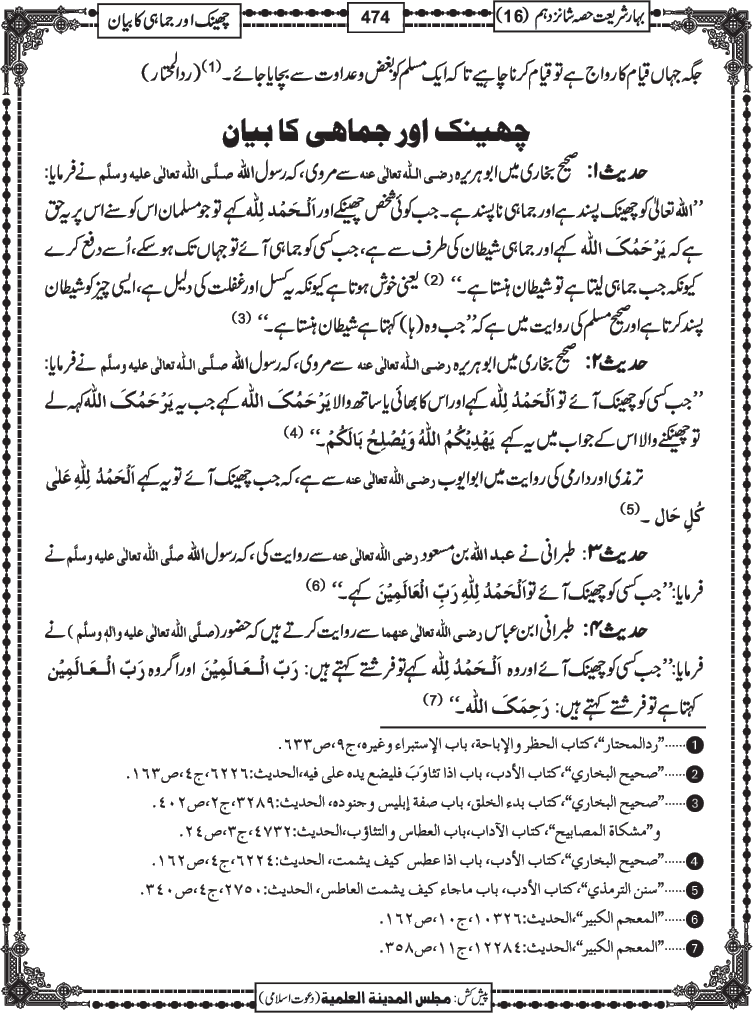 بہارِ شریعت حصہ شانزدہم (16)
474
چھینک اور جماہی کا بیان
جگہ جہاں قیام کا رواج ہے تو قیام کرنا چاہیے تاکہ ایک مسلم کو بغض و عداوت سے بچایا جائے۔ (1) (ردالمحتار)
چھینک اور جماہی کا بیان
حدیث ۱: صحیح بخاری میں ابوہریرہ رضی اللہ تعالٰی عنہ سے مروی، کہ رسول اللہ صلَّی اللہ تعالٰی علیہ وسلَّم نے فرمایا:
’’اللہ تعالیٰ کو چھینک پسند ہے اور جماہی ناپسند ہے۔ جب کوئی شخص چھینکے اور اَلْحَمْدُ لِلّٰہ کہے تو جو مسلمان اس کو سنے اس پر یہ حق
ہے کہ یَرْحَمُکَ اللہ کہے اور جماہی شیطان کی طرف سے ہے، جب کسی کو جماہی آئے تو جہاں تک ہوسکے، اُسے دفع کرے
کیونکہ جب جماہی لیتا ہے تو شیطان ہنستا ہے۔‘‘ (2) یعنی خوش ہوتا ہے کیونکہ یہ کسل اور غفلت کی دلیل ہے، ایسی چیز کو شیطان
پسند کرتا ہے اور صحیح مسلم کی روایت میں ہے کہ ’’جب وہ (ہا) کہتا ہے شیطان ہنستا ہے۔‘‘ (3)
حدیث ۲: صحیح بخاری میں ابوہریرہ رضی اللہ تعالٰی عنہ سے مروی، کہ رسول اللہ صلَّی اللہ تعالٰی علیہ وسلَّم نے فرمایا:
’’جب کسی کو چھینک آئے تو اَلْحَمْدُ لِلّٰہ کہے اور اس کا بھائی یا ساتھ والا یَرْحَمُکَ اللہ کہے جب یہ یَرْحَمُکَ اللہ کہہ لے
تو چھینکنے والا اس کے جواب میں یہ کہے یَھْدِیْکُمُ اللہُ وَیُصْلِحُ بَالَکُمْ۔‘‘ (4)
ترمذی اور دارمی کی روایت میں ابو ایوب رضی اللہ تعالٰی عنہ سے ہے، کہ جب چھینک آئے تو یہ کہے اَلْحَمْدُ لِلّٰہِ عَلٰی
کُلِ حَال ۔(5)
حدیث ۳: طبرانی نے عبد اللہ بن مسعود رضی اللہ تعالٰی عنہ سے روایت کی، کہ رسول اللہ صلَّی اللہ تعالٰی علیہ وسلَّم نے
فرمایا: ’’جب کسی کو چھینک آئے تو اَلْحَمْدُ لِلّٰہِ رَبِّ الْعَالَمِیْنَ کہے۔‘‘ (6)
حدیث ۴: طبرانی ابن عباس رضی اللہ تعالٰی عنھما سے روایت کرتے ہیں کہ حضور (صلَّی اللہ تعالٰی علیہ واٰلہٖ وسلَّم) نے
فرمایا: ’’جب کسی کو چھینک آئے اور وہ اَلْحَمْدُ لِلّٰہ کہے تو فرشتے کہتے ہیں: رَبِّ الْعَالَمِیْنَ اور اگر وہ رَبِّ الْعَالَمِیْن
کہتا ہے تو فرشتے کہتے ہیں: رَحِمَکَ اللہ۔‘‘ (7)
1 ......”ردالمحتار“، كتاب الحظر والإباحة، باب الإستبراء وغيره، ج٩، ص٦٣٣.
2 ......”صحيح البخاري“، كتاب الأدب، باب اذا تثاوَبَ فليضع يده على فيه، الحديث: ٦٢٢٦، ج٤، ص١٦٣.
3 ......”صحيح البخاري“، كتاب بدء الخلق، باب صفة إبليس وجنوده، الحديث: ٣٢٨٩، ج٢، ص٤٠٢.
و”مشكاة المصابيح“، كتاب الآداب، باب العطاس والتثاؤب، الحديث: ٤٧٣٢، ج٣، ص٢٤.
4 ......”صحيح البخاري“، كتاب الأدب، باب اذا عطس كيف يشمت، الحديث: ٦٢٢٤، ج٤، ص١٦٢.
5 ......”سنن الترمذي“، كتاب الأدب، باب ماجاء كيف يشمت العاطس، الحديث: ٢٧٥٠، ج٤، ص٣٤٠.
6 ......”المعجم الكبير“، الحديث: ١٠٣٢٦، ج١٠، ص١٦٢.
7 ......”المعجم الكبير“، الحديث: ١٢٢٨٤، ج١١، ص٣٥٨.
پیش کش: مجلس المدینة العلمیة (دعوت اسلامی)